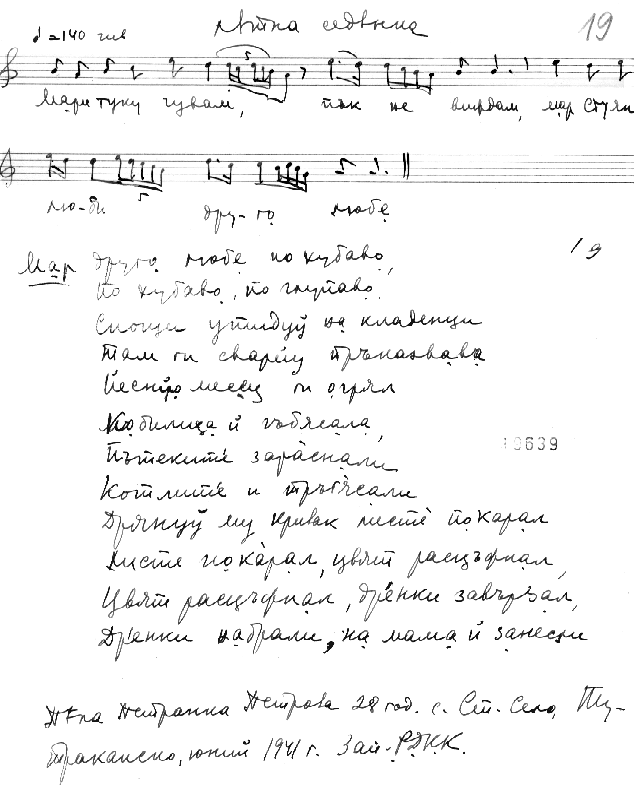 лятна седянка 19
♩=140 жив
Мари туку чувам, пък не виждам, мар Стуян
лю-би дру-го либе
Мар друго любе по хубаво, 19
По хубаво, по гиздаво
Снощи у на кладенци
Там ги сварих
месец ги огрял
Кобилица й
Пътеките зараснали
Котлите и
му кривак листе покарал
Листе покарал, цвят расцъфнал,
Цвят расцъфнал, дренки завързал,
Дренки набрали, на мама й занесли
10639
Петранка Петрова 28 год. с. Ст. Село, Ту-
тракански, юний 1941 г. Зап. РДКК.